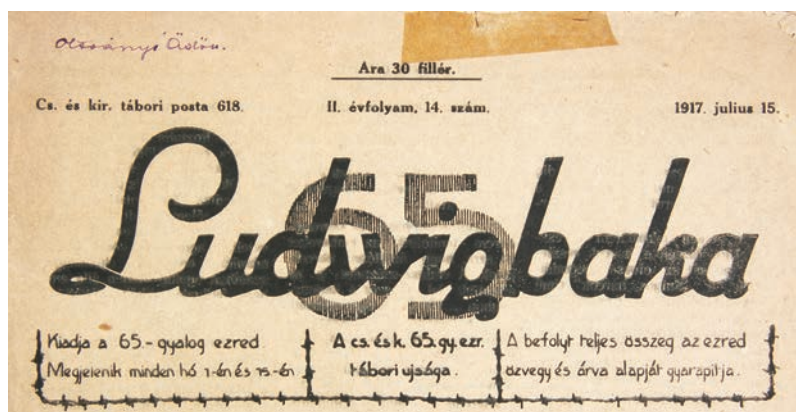 Olsványi Ödön.
Ára 30 fillér.
Cs. és kir. tábori posta 618. II. évfolyam, 14. szám. 1917. julius 15.
65
Ludwigbaka
Kiadja a 65.-gyalog ezred
Megjelenik minden hó 1-én és 15-én
A cs. és k. 65. gy. ezr.
tábori ujsága.
A befolyt teljes összeg az ezred
özvegy és árva alapját gyarapitja.